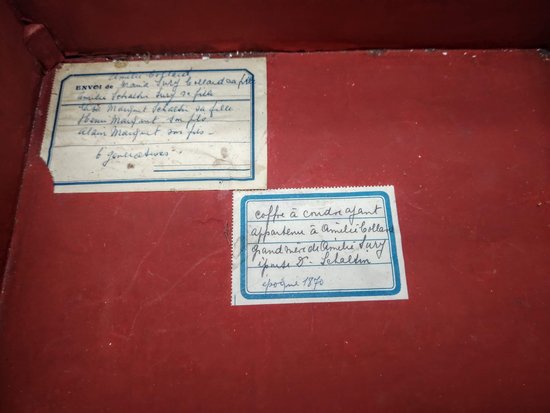 Amélie Collard
ENVOI de Maria Sury Collard sa fille
Amélie Schaltin Sury sa fille
Margurt Schaltin sa fille
Henri Margurt son fils
Alain Margurt son fils -
6 générations
coffre à coudre ayant
appartenu à Amélie Collard
grand'mère de Amélie Sury
épouse Dr Schaltin
époque 1870